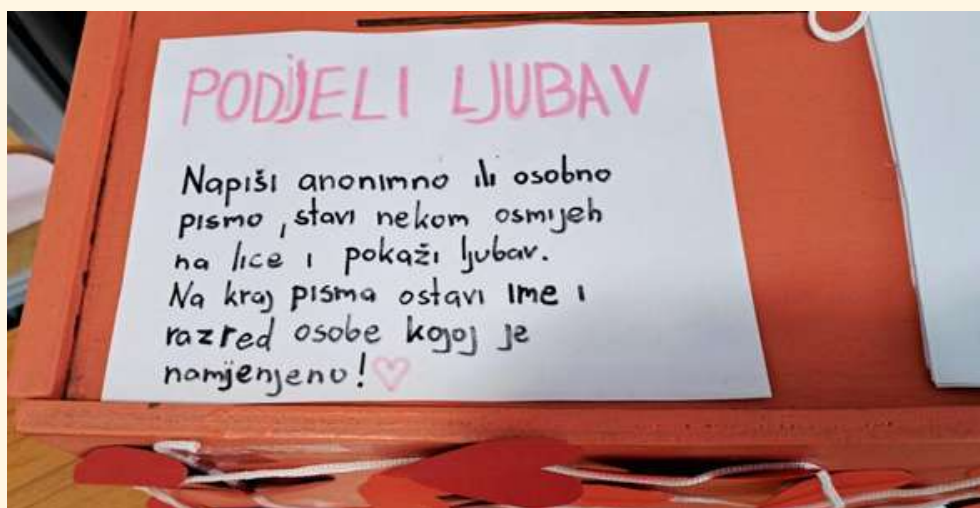 PODIJELI LJUBAV
Napiši anonimno ili osobno
pismo, stavi nekom osmijeh
na lice i pokaži ljubav.
Na kraj pisma ostavi ime i
razred osobe kojoj je
namjenjeno!